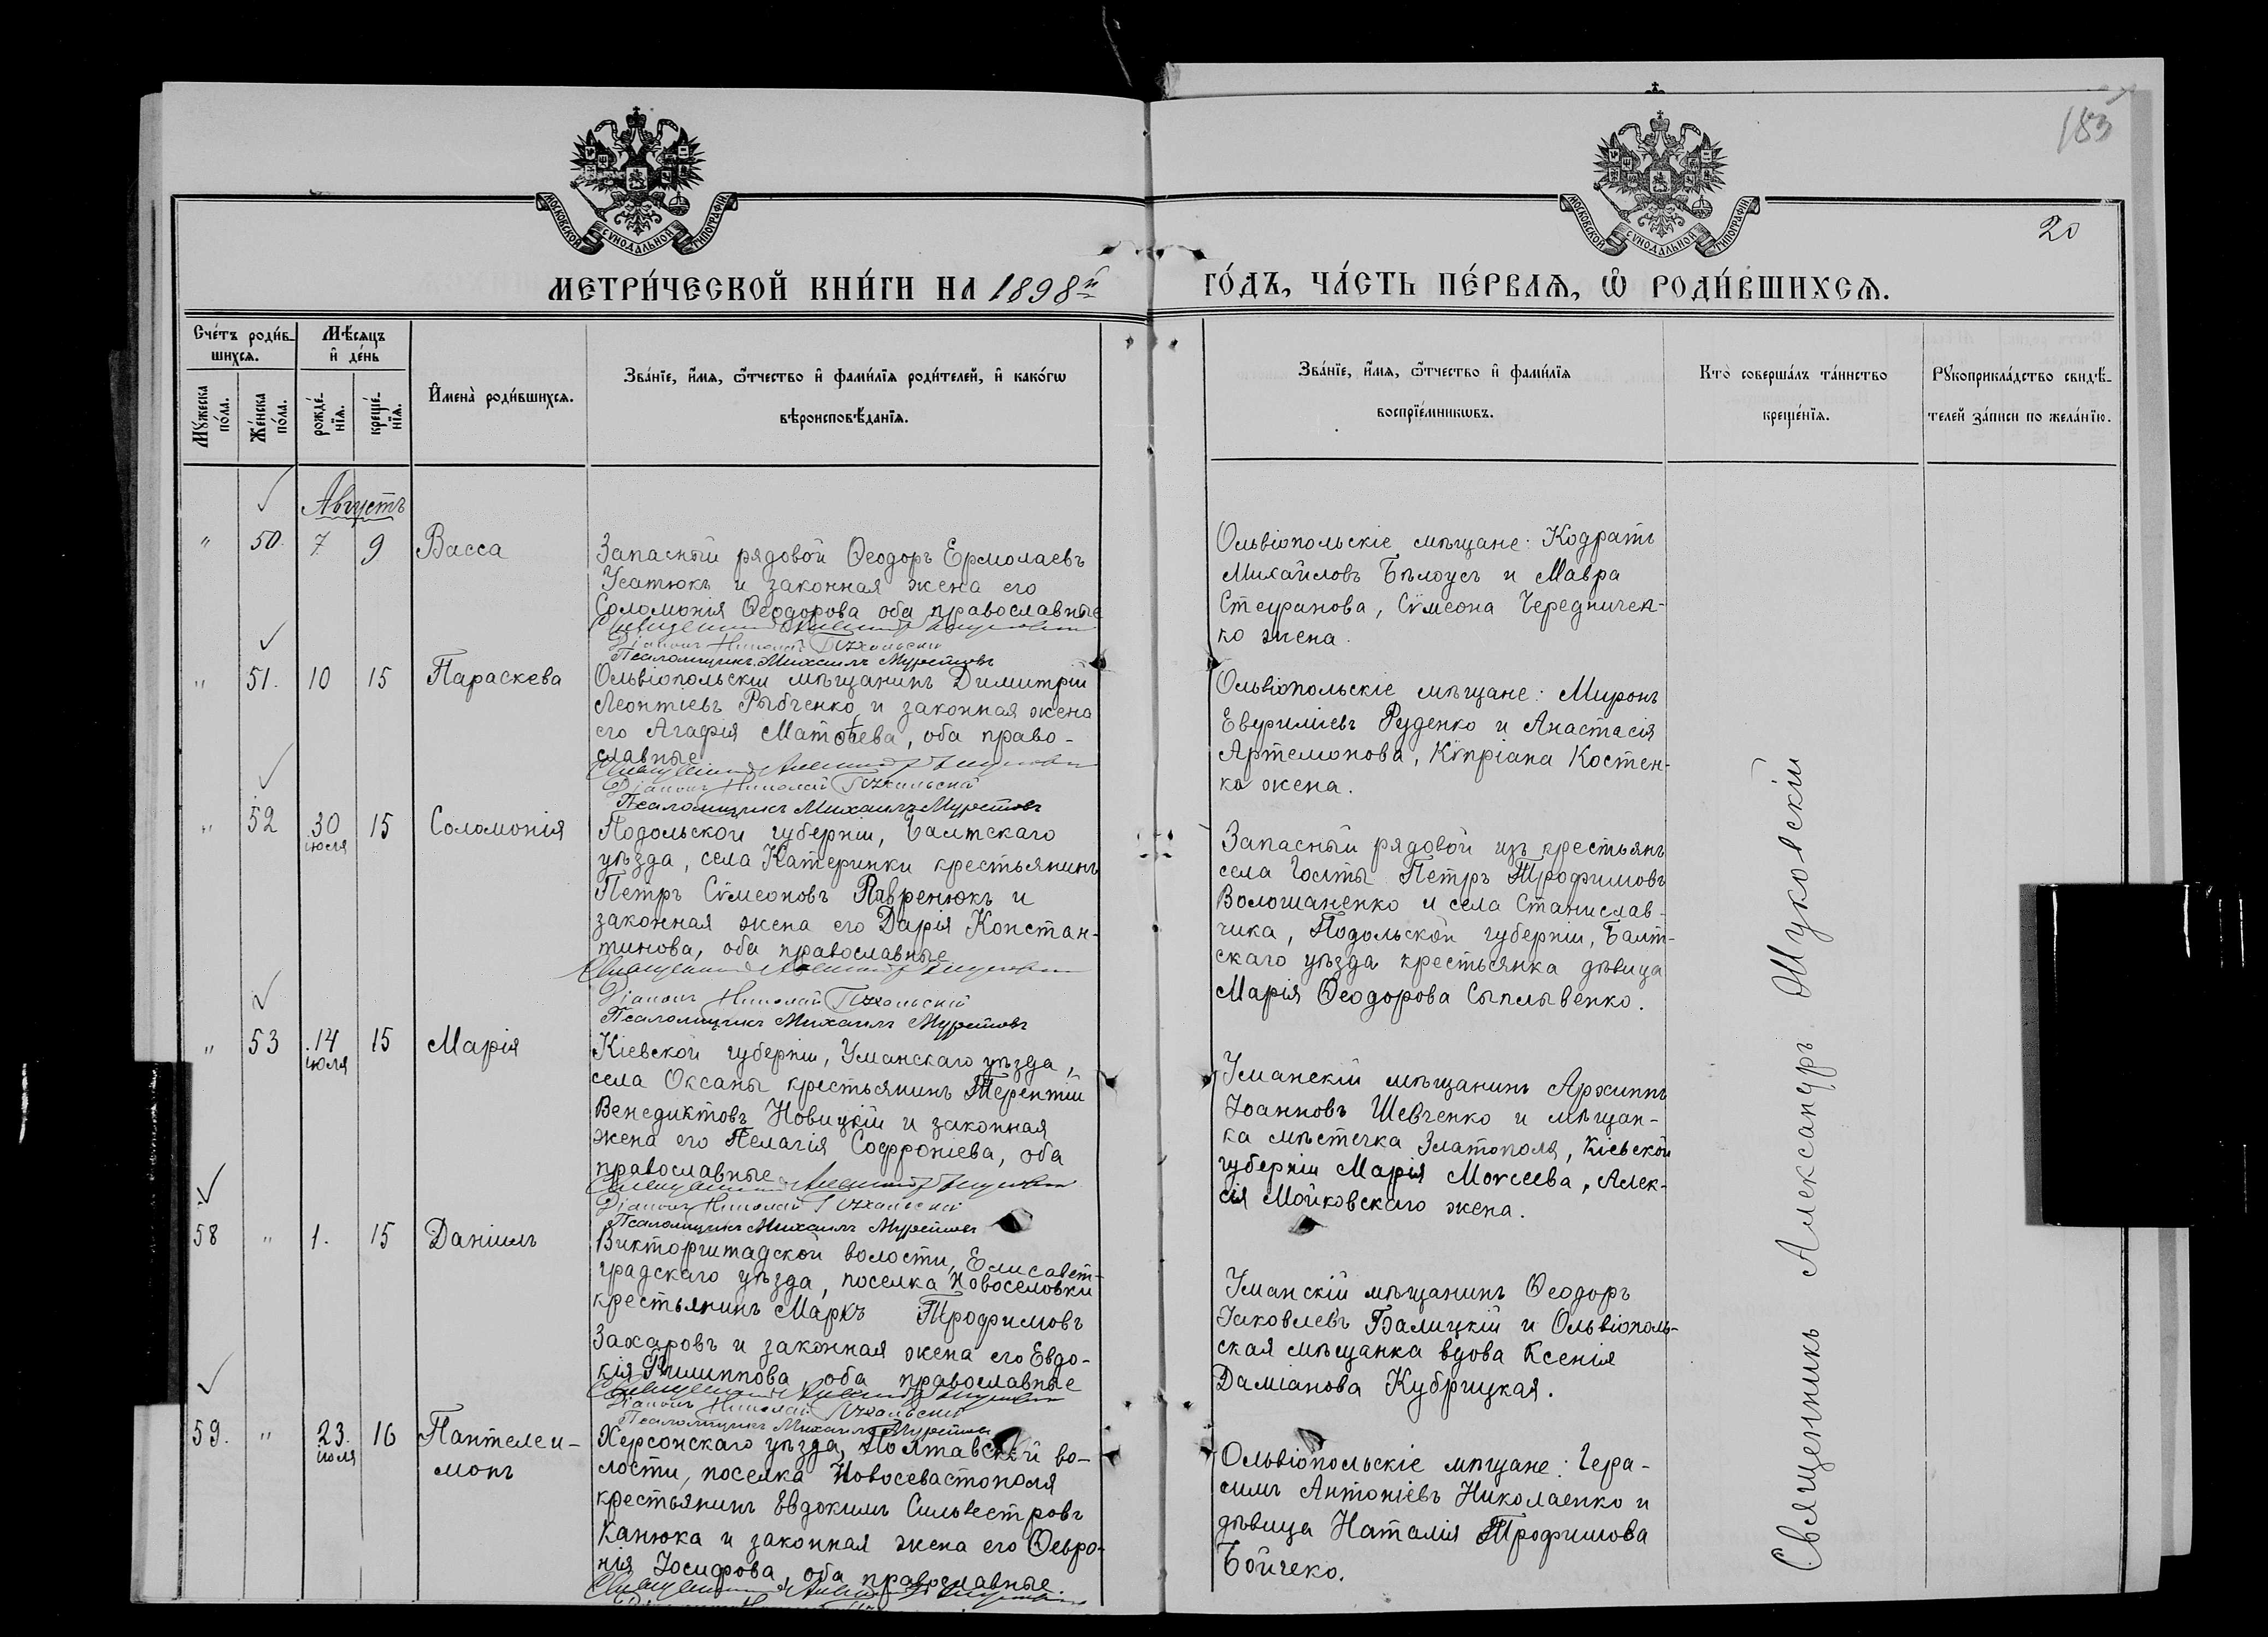 183
20
МОСКОВСКОЙ СѴНОДАЛЬНОЙ ТИПОГРАФІИ
МОСКОВСКОЙ СѴНОДАЛЬНОЙ ТИПОГРАФІИ
МЕТРИ́ЧЕСКОЙ КНИ́ГИ НА 1898й
ГО́ДЪ, ЧА́СТЬ ПЕ́РВАѦ, Ѡ҆ РОДИ́ВШИХСѦ.
Сче́тъ роди́в-
шихсѧ.
Мѣ́сѧцъ
и҆ де́нь
Мꙋ́жеска
по́ла.
Же́нска
по́ла.
рожде́-
нїѧ.
креще́-
нїѧ.
И҆мена̀ роди́вшихсѧ.
Зва́нїе, и҆́мѧ, ѻ҆́тчество и҆ фами́лїѧ роди́телей, и҆ како́гѡ
вѣроисповѣ́данїѧ.
Зва́нїе, и҆́мѧ, ѻ҆́тчество и҆ фами́лїѧ
воспрїе́мникѡвъ.
Кто̀ соверша́лъ та́инство
креще́нїѧ.
Рꙋкоприкла́дство свидѣ́-
телей за́писи по жела́нїю.
Августъ
" 50. 7 9 Васса
Запасный рядовой Ѳеодоръ Ермолаевъ
Усатюкъ и законная жена его
Соломонія Ѳеодорова оба православные
Священникъ Александръ
Діаконъ Николай
Псаломщикъ Михаилъ Муретовъ
Ольвіопольскіе мѣщане: Кодратъ
Михайловъ Бѣлоусъ и Мавра
Стефанова, Сѵмеона Чередничен-
ко жена.
" 51. 10 15 Параскева
Ольвіопольскій мѣщанинъ Димитрій
Леонтіевъ Рыбченко и законная жена
его Агафія Матѳѣева, оба право-
славные
Священникъ Александръ
Діаконъ Николай
Псаломщикъ Михаилъ Муретовъ
Ольвіопольскіе мѣщане: Миронъ
Евфиміевъ Руденко и Анастасія
Артемонова, Кѵпріана Костен-
ко жена.
" 52 30 іюля 15 Соломонія
Подольской губерніи, Балтскаго
уѣзда, села Катеринки крестьянинъ
Петръ Сѵмеоновъ Лавренюкъ и
законная жена его Дарія Констан-
тинова, оба православные
Священникъ Александръ
Діаконъ Николай
Псаломщикъ Михаилъ Муретовъ
Запасный рядовой изъ крестьянъ
села Голты Петръ Трофимовъ
Волошаненко и села Станислав-
чика, Подольской губерніи, Балт-
скаго уѣзда крестьянка дѣвица
Марія Ѳеодорова Сыплывенко.
" 53 14 іюля 15 Марія
Кіевской губерніи, Уманскаго уѣзда,
села Оксаны крестьянинъ Терентій
Венедиктовъ Новицкій и законная
жена его Пелагія Софроніева, оба
православные
Священникъ Александръ
Діаконъ Николай
Псаломщикъ Михаилъ Муретовъ
Уманскій мѣщанинъ Архиппъ
Іоанновъ Шевченко и мѣщан-
ка мѣстечка Златополя, Кіевской
губерніи Марія Моѵсеева, Алек-
сія Мойковскаго жена.
58 " 1. 15 Даніилъ
Викторштадской волости, Елисавет-
градскаго уѣзда, поселка Новоселовки
крестьянинъ Маркъ Трофимовъ
Захаровъ и законная жена его Евдо-
кія Филиппова, оба православные
Священникъ Александръ
Діаконъ Николай
Псаломщикъ Михаилъ Муретовъ
Уманскій мѣщанинъ Ѳеодоръ
Іаковлевъ Балицкій и Ольвіополь-
ская мѣщанка вдова Ксенія
Даміанова Кубрицкая.
59. " 23. іюля 16 Пантелеи-
монъ
Херсонскаго уѣзда, Полтавской во-
лости, поселка Новосевастополя
крестьянинъ Евдокимъ Сильвестровъ
Канюка и законная жена его Ѳевро-
нія Іосифова, оба православные.
Священникъ Александръ
Ольвіопольскіе мѣщане: Гера-
симъ Антоніевъ Николаенко и
дѣвица Наталія Трофимова
Бойчеко.
Священникъ Александръ